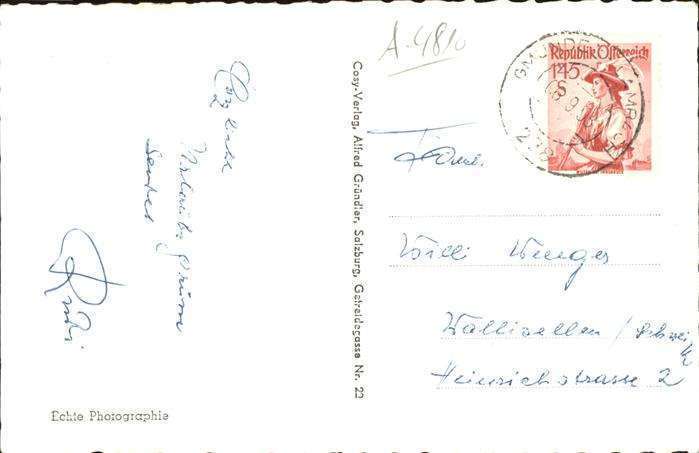 A.4810
Republik Österreich
1.45
S
GMUNDEN
Herzliche
Urlaubsgrüsse
sendet
Rudi
Cosy-Verlag, Alfred Gründler, Salzburg, Getreidegasse Nr. 22
Fam.
Willi Wenger
Wallisellen / Schweiz
Heinrichstrasse 2
Echte Photographie